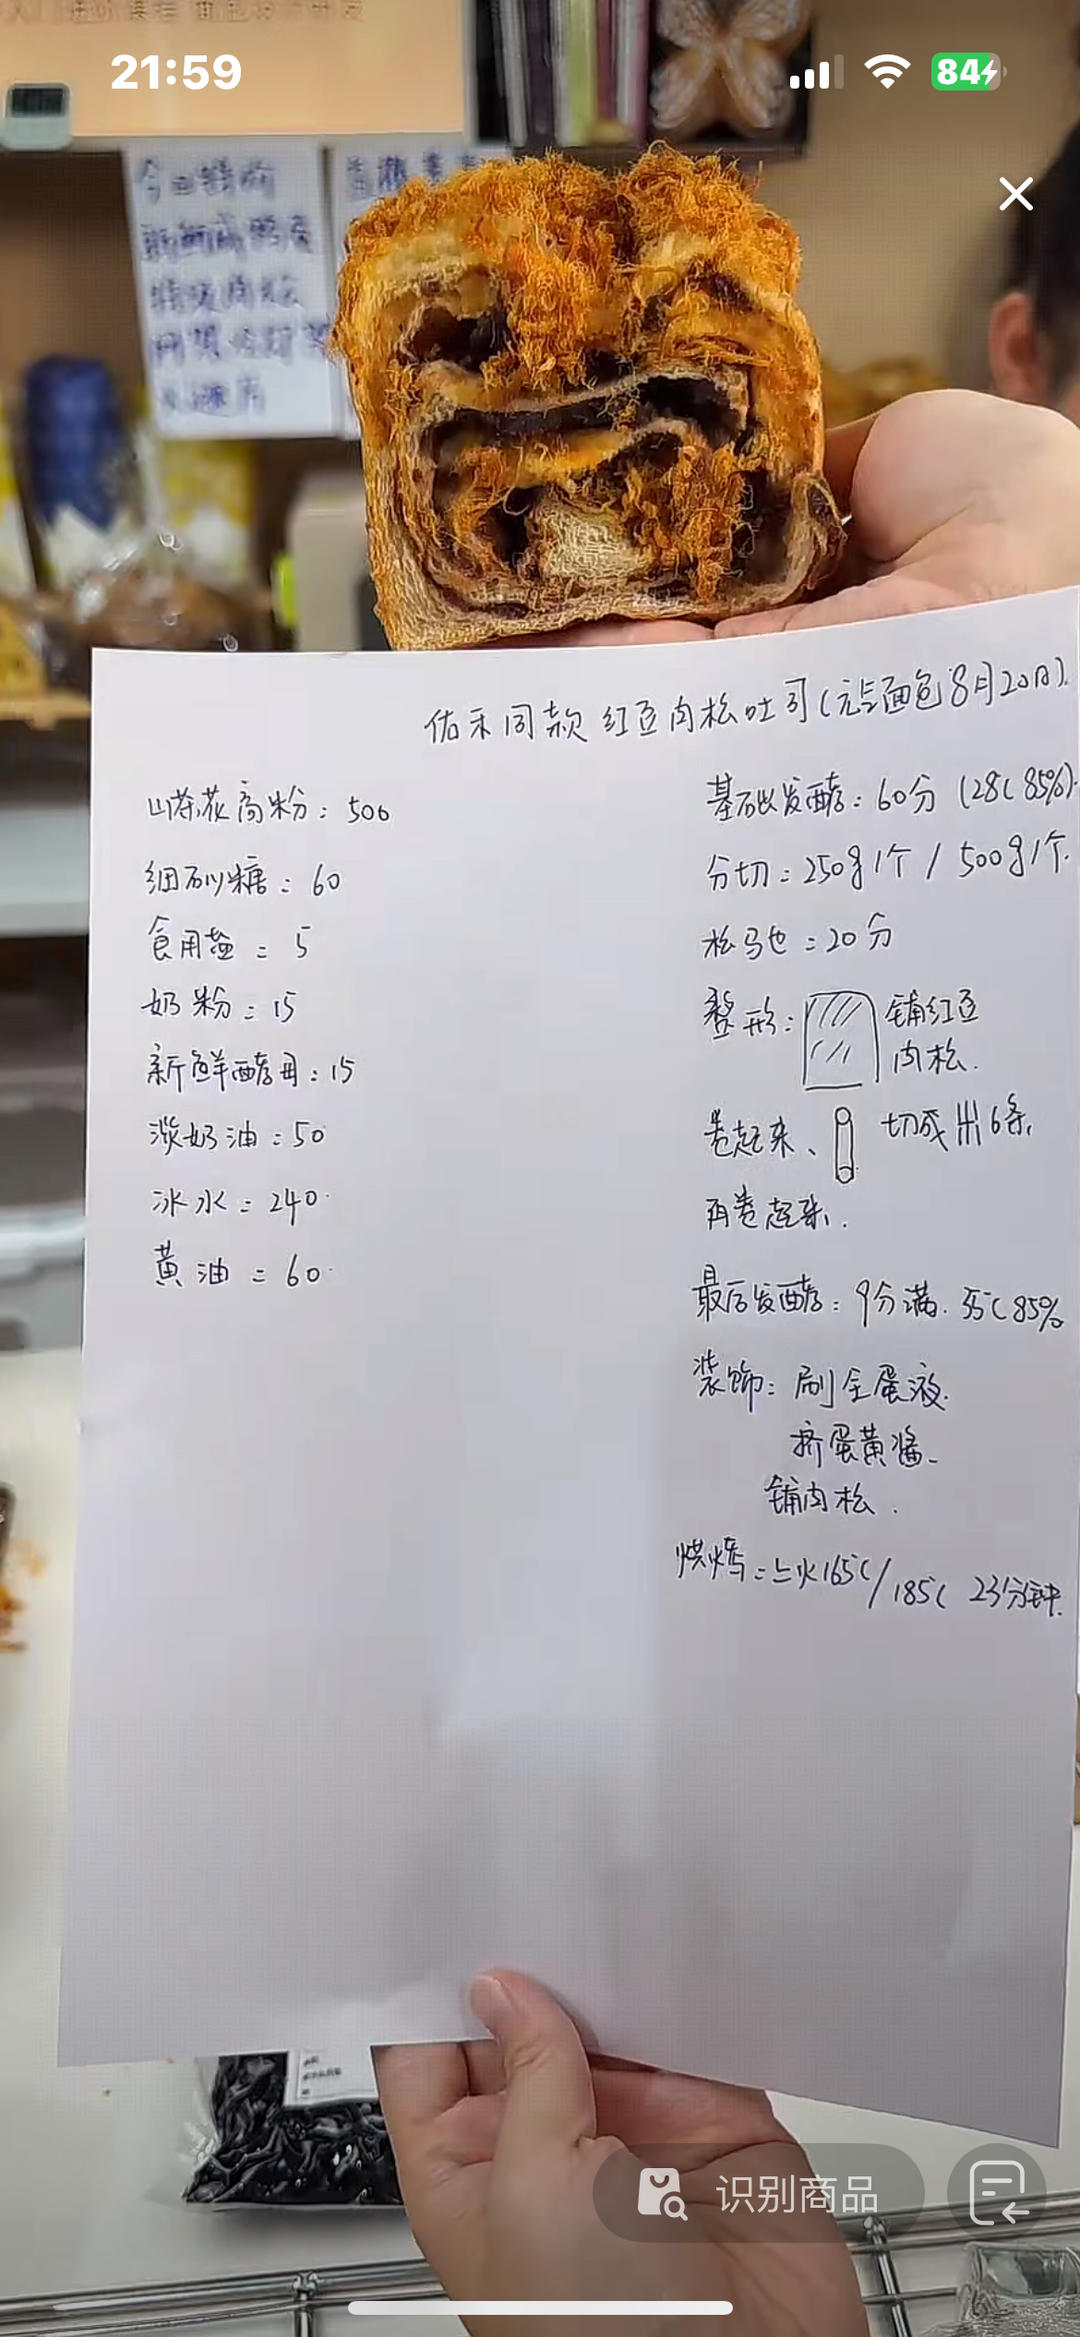 21:59
84
佑禾同款 红豆肉松吐司(元气面包8月20日).
山茶花高粉: 500
细砂糖: 60
食用盐: 5
奶粉: 15
新鲜酵母: 15
淡奶油: 50
冰水: 240
黄油: 60
基础发酵: 60分 (28C 85%).
分切: 250g1个 / 500g1个.
松弛: 20分
整形: 铺红豆
肉松.
卷起来、 切成 6条,
再卷起来.
最后发酵: 9分满. 35C 85%
装饰: 刷全蛋液.
挤蛋黄酱.
铺肉松.
烘烤: 上火165C/185C 23分钟.
识别商品